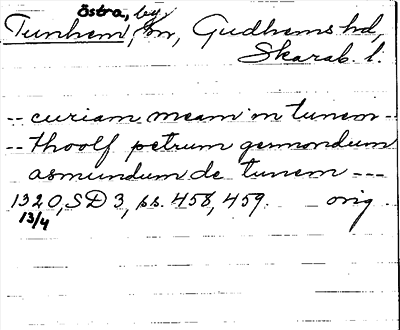 Östra, by
Tunhem, sn, Gudhems hd,
Skarab. l.
-- curiam meam in tunem -
-- thoolf petrum germondum
asmundum de tunem ---
1320, SD 3, ss. 458, 459. orig.
13/4